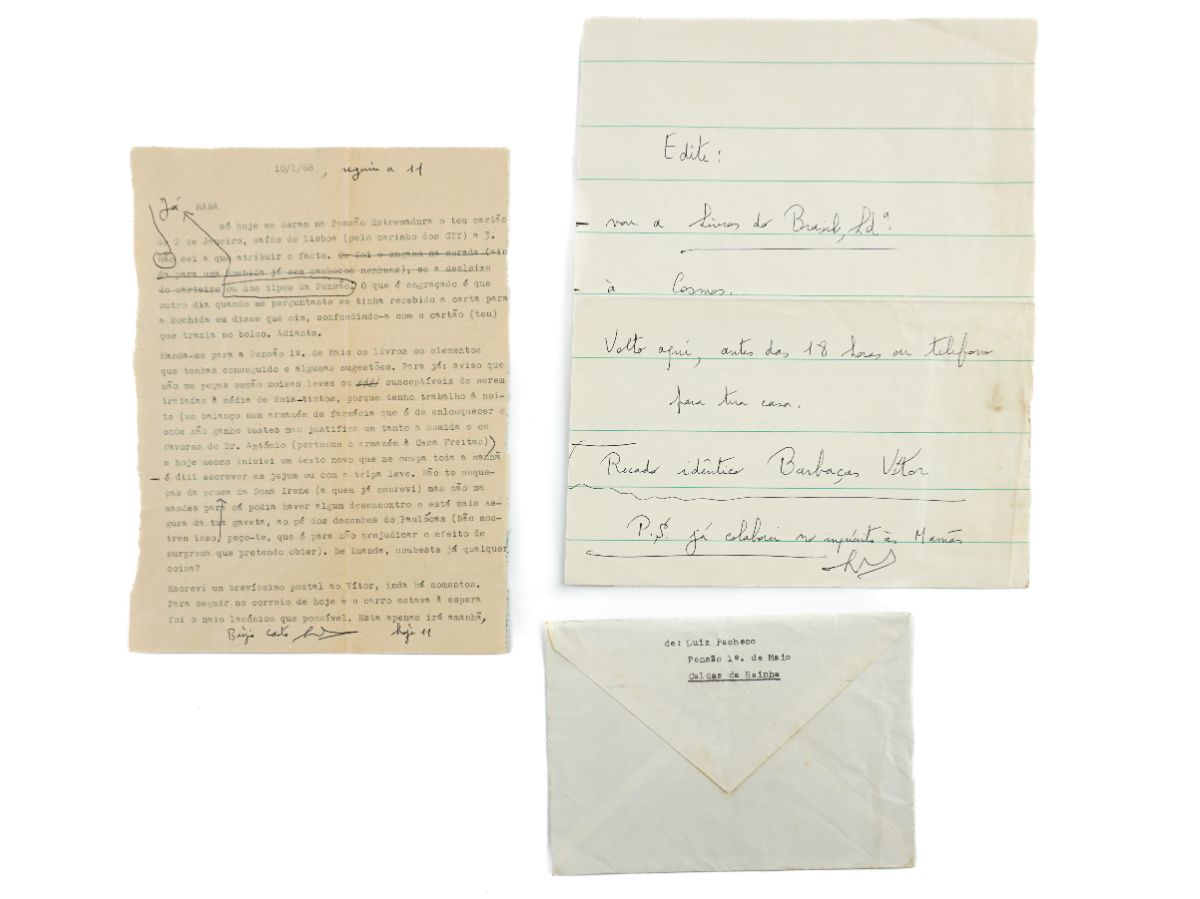 10/1/68, seguiu a 11
Já
MANA
só hoje me deram na Pensão Estremadura o teu cartão
de 2 de Janeiro, saído de Lisboa (pelo carimbo dos CTT) a 3.
Não sei a que atribuir o facto. Ou foi o engano na morada (ain
da para uma Rochida já sem pachecos nenhuns), se a desleixo
do carteiro ou dos tipos da Pensão. O que é engraçado é que
outro dia quando me perguntaste se tinha recebido a carta para
a Rochida eu disse que sim, confundindo-a com o cartão (teu)
que trazia no bolso. Adiante.
Manda-me para a Pensão 1º. de Maio os livros ou elementos
que tenhas conseguido e algumas sugestões. Para já: aviso que
não me peças senão coisas leves ou susceptíveis de serem
tratadas à média de dois tintos, porque tenho trabalho à noi-
te (um balanço num armazém de farmácia que é de enlouquecer e
onde não ganho tustes mas justifica um tanto a comida e os
favores do Dr. António (pertence o armazém à Casa Freitas)
e hoje mesmo iniciei um texto novo que me ocupa toda a manhã
é útil escrever em jejum ou com a tripa leve. Não te esque-
ças da prosa da Dona Irene (a quem já escrevi) mas não ma
mandes para cá podia haver algum desencontro e está mais se-
gura da tua gaveta, ao pé dos desenhos do Paulócas (Não mos-
tres isso, peço-te, que é para não prejudicar o efeito de
surpresa que pretendo obter). De Luanda, soubeste já qualquer
coisa?
Escrevi um brevíssimo postal ao Vítor, inda há momentos.
Para seguir no correio de hoje e o carro estava à espera
foi o mais lacónico que possível. Esta apenas irá amanhã,
hoje 11
Edite:
- vou a Livros do Brasil, Ldª
- à Cosmos.
Volto aqui, antes das 18 horas ou telefono
para tua casa.
Recado idêntico Barbaças Vítor
P.S. já colaborei no inquérito às Mamãs
de: Luiz Pacheco
Pensão 1º. de Maio
Caldas da Rainha